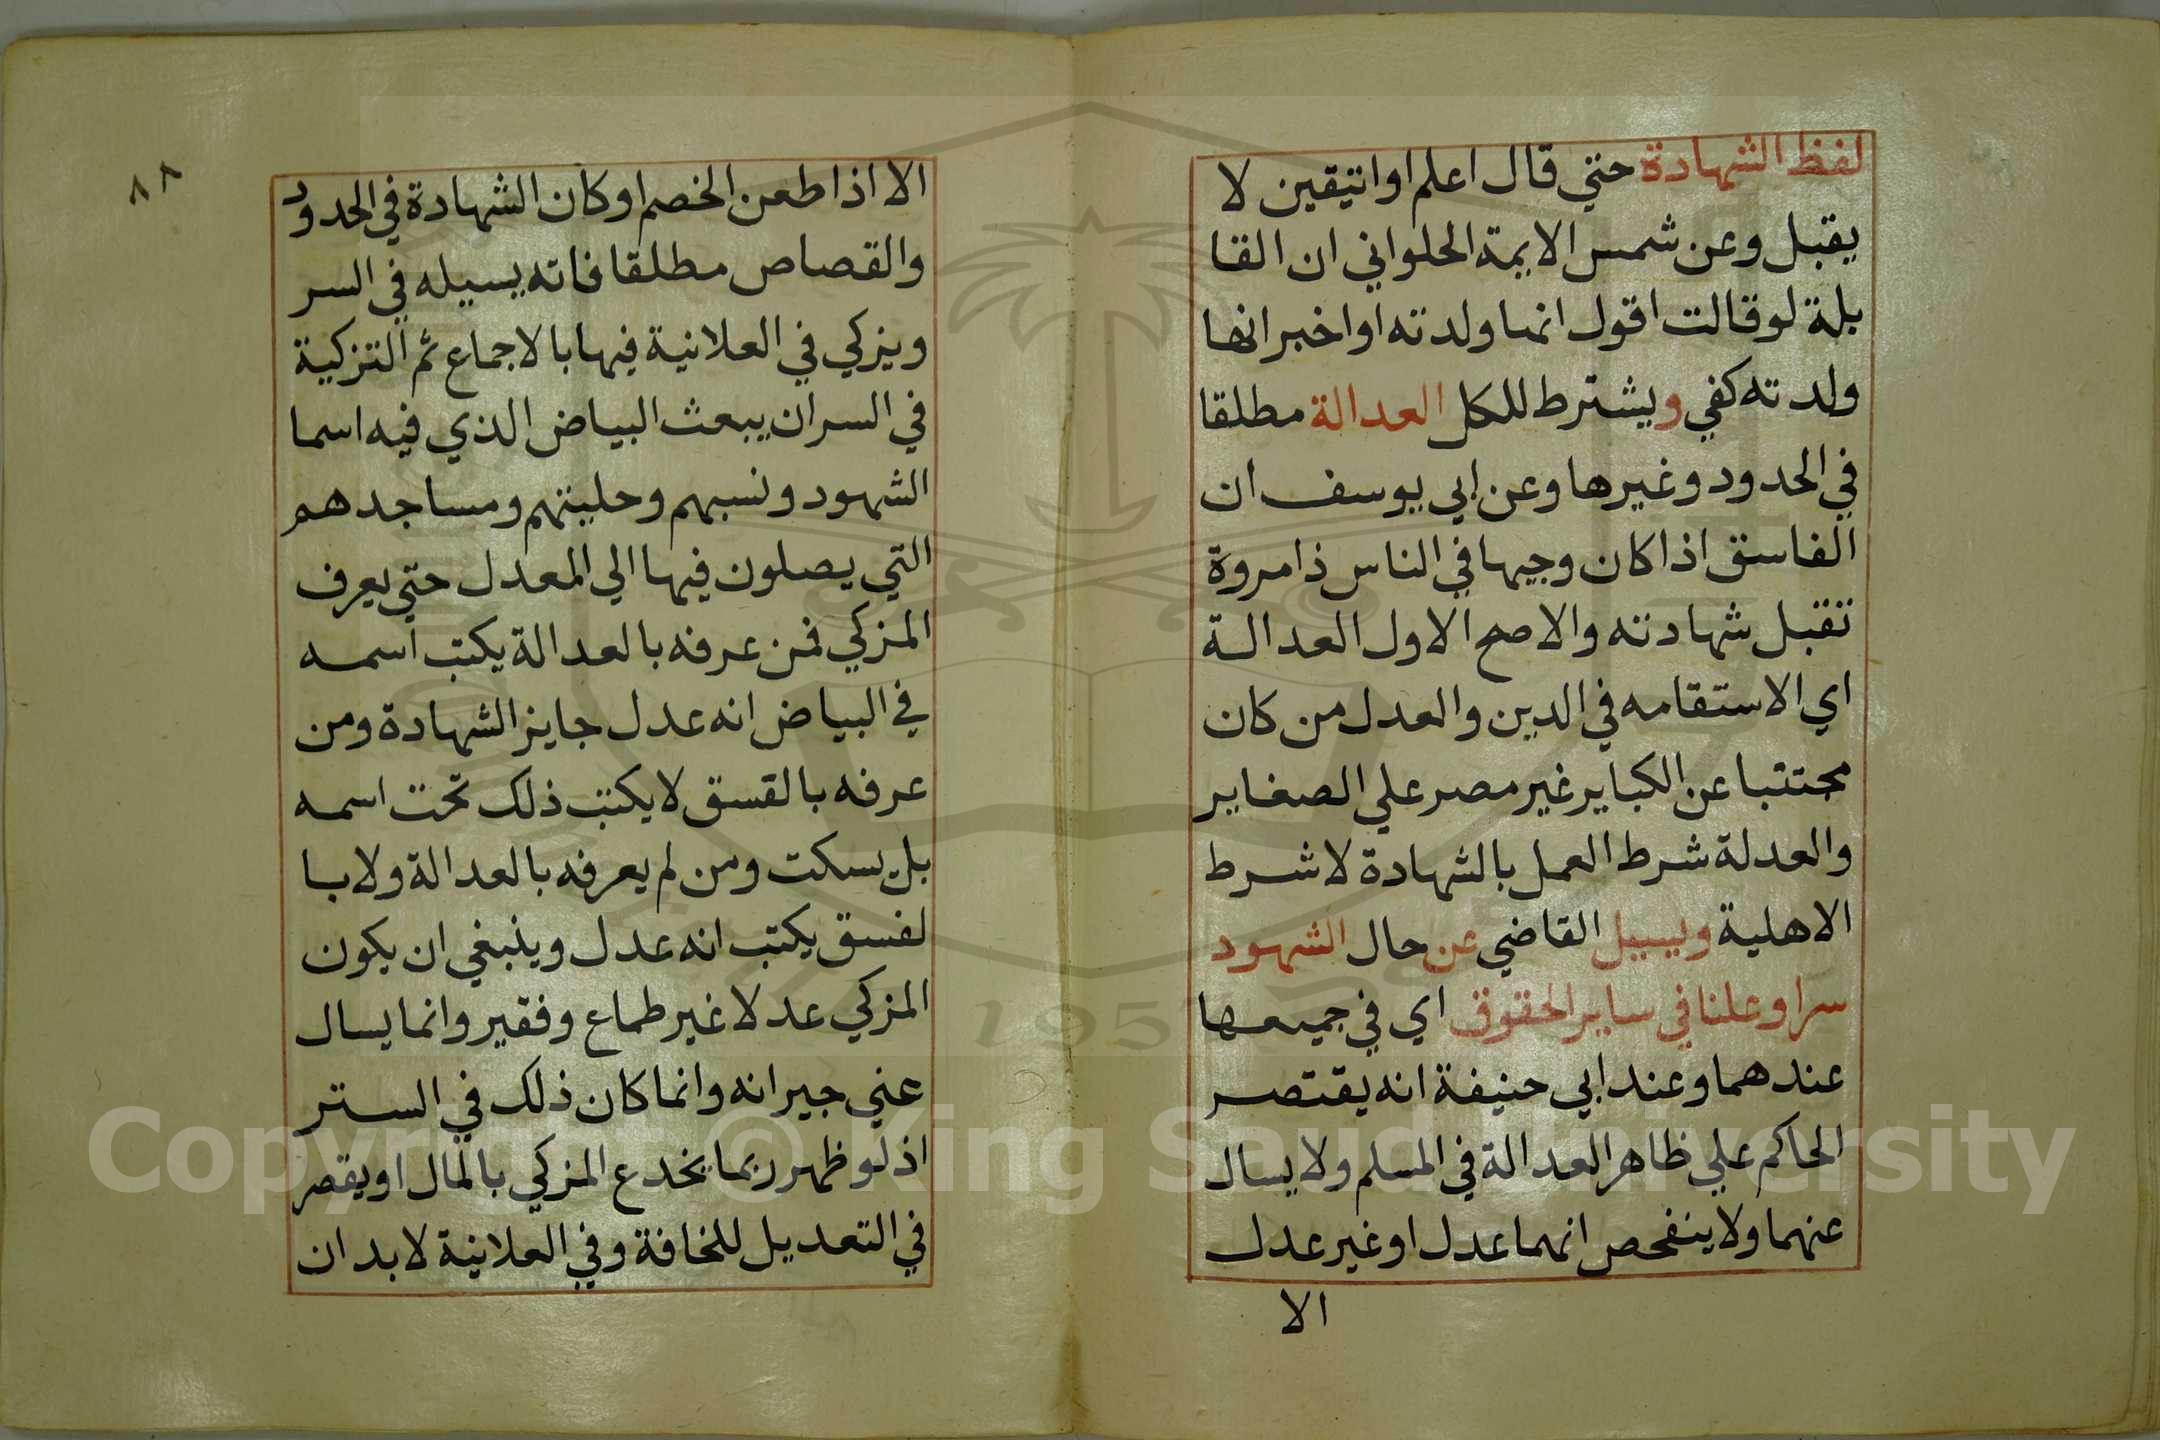 لفظ الشهادة حتي قال اعلم او اتيقين لا
يقبل وعن شمس الايمة الحلواني ان القا
بلة لو قالت اقول انما ولدته او اخبر انها
ولدته كفي ويشترط للكل العدالة مطلقا
في الحدود وغيرها وعن ابي يوسف ان
الفاسق اذا كان وجيها في الناس ذا مروة
تقبل شهادته والاصح الاول العدالة
اي الاستقامه في الدين والعدل من كان
مجتنبا عن الكباير غير مصر علي الصغاير
والعدلة شرط العمل بالشهادة لا شرط
الاهلية ويسيل القاضي عن حال الشهود
سرا وعلنا في ساير الحقوق اي في جميعها
عندهما وعند ابي حنيفة انه يقتصر
الحاكم علي ظاهر العدالة في المسلم ولا يسال
عنهما ولا ينفحص انهما عدل او غير عدل
الا
٨٨
الا اذا طعن الخصم او كان الشهادة في الحدود
والقصاص مطلقا فانه يسيله في السر
ويزكي في العلانية فيها بالاجماع ثم التزكية
في السر ان يبعث البياض الذي فيه اسما
الشهود ونسبهم وحليتهم ومساجدهم
التي يصلون فيها الي المعدل حتي يعرف
المزكي فمن عرفه بالعدالة يكتب اسمه
في البياض انه عدل جايز الشهادة ومن
عرفه بالقسق لا يكتب ذلك تحت اسمه
بل يسكت ومن لم يعرفه بالعدالة ولا با
لفسق يكتب انه عدل وينبغي ان يكون
المزكي عدلا غير طماع وفقير وانما يسال
عني جيرانه وانما كان ذلك في الستر
اذ لو ظهر ربما يخدع المزكي بالمال او يقصر
في التعديل للخافة وفي العلانية لا بد ان
1957
Copyright © King Saud University